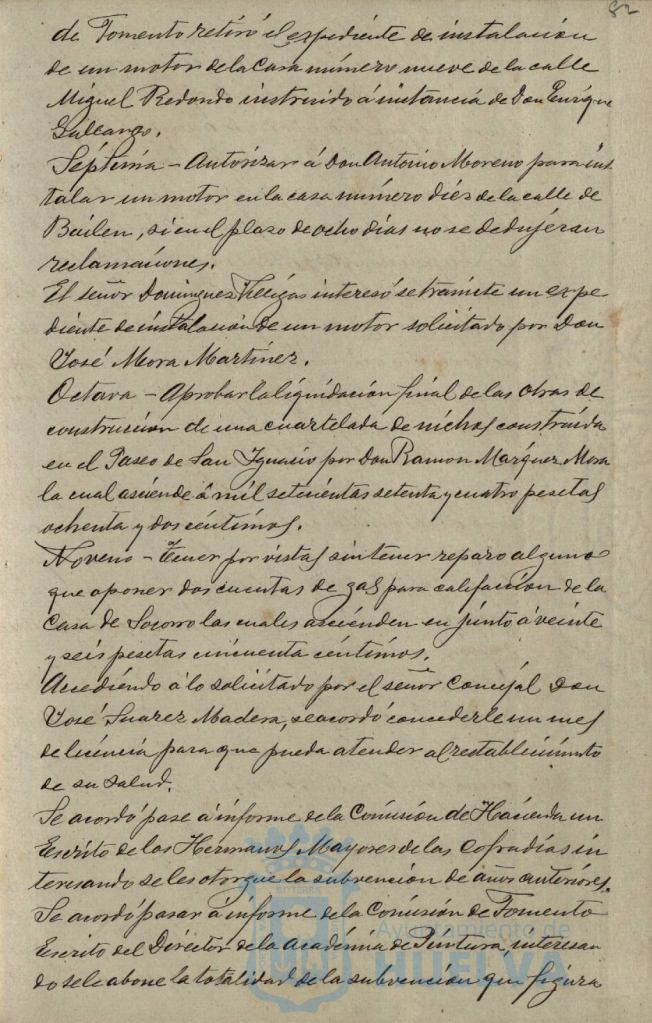 82
de Fomento retiró el expediente de instalación
de un motor de la Casa número nueve de la calle
Miguel Redondo instruido á instancia de Don Enrique

Séptima - Autorizar á Don Antonio Moreno para ins
talar un motor en la casa número diez de la calle de
Bailen, si en el plazo de ocho días no se dedujeran
reclamaciones.
El señor Dominguez Villegas interesó se tramite un expe
diente de instalación de un motor solicitado por Don
José Mora Martínez.
Octava - Aprobar la liquidación final de las obras de
construcción de una cuartelada de nichos construida
en el Paseo de San Ignacio por Don Ramon Marquez Mora
la cual asciende á mil setecientas setenta y cuatro pesetas
ochenta y dos céntimos.
Noveno - Tener por vistas sin tener reparo alguno
que oponer dos cuentas de gas para calefacción de la
Casa de Socorro las cuales ascienden en junto á veinte
y seis pesetas cincuenta céntimos.
Accediendo á lo solicitado por el señor Concejal Don
José Suarez Madera, se acordó concederle un mes
de licencia para que pueda atender al restablecimiento
de su salud.
Se acordó pase á informe de la Comisión de Hacienda un
Escrito de los Hermanos Mayores de las Cofradías in
teresando se les otorgue la subvención de años anteriores.
Se acordó pasar á informe de la Comisión de Fomento
Escrito del Director de la Académia de Pintura, interesan
do se le abone la totalidad de la subvención que figura
Ayuntamiento de
HUELVA